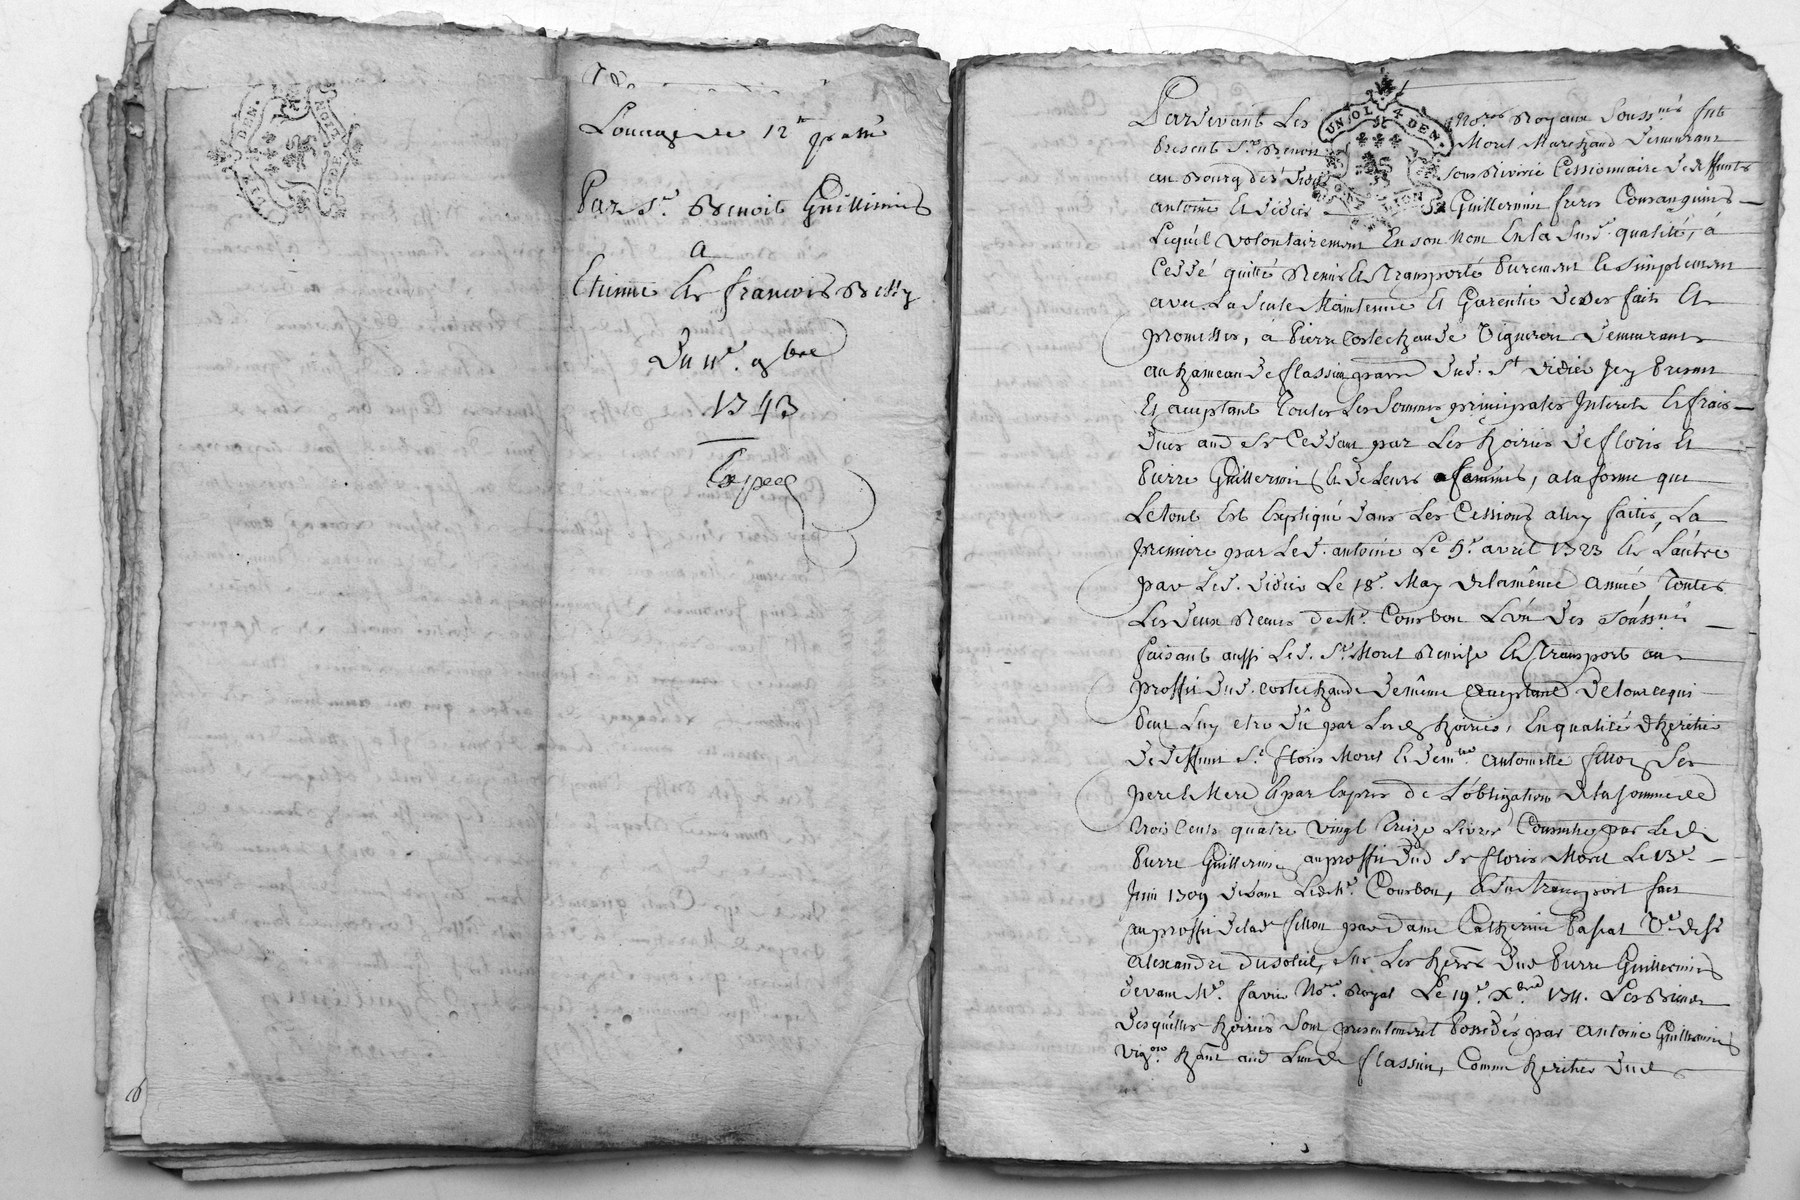 Louage de 12 # par an
Par Sr. Benoit Guillermin
a
Etienne & francois Bessy
Du 11e. 9bre
1743
Expeé
UN SOL 4 DEN.
GEN DE LION
Pardevant Les Nores. Royaux Soussnés fut
Present Sr. Benoit Morel Marchand Demeurant
au Bourg de St Didier Sous Riverie Cessionnaire de deffunts
antoine Et Didier Guillermin freres Consanguins
Lequel volontairement En son nom En la Susd. qualité, a
Ceddé quitté Remis Et Transporté Purement Et Simplement
avec La Seule Maintenue Et Garentie de Ses faits Et
promesses, à Pierre Costechaude Vigneron Demeurant
au hameau de flassieu parr. dud. St Didier Icy Present
Et aceptant Toutes Les Sommes principales Interets Et frais
dues aud Sr Ceddant par Les hoiries de floris Et
Pierre Guillermin Et de Leurs femmes, a la forme que
Le tout Est Expliqué dans Les Cessions a luy faites, La
premiere par Led. antoine Le 5e. avril 1723 Et Lautre
par Led. didier Le 18e. May de la même année, Toutes
Les deux Receues de Me. Courbon L'un des Soussnés
faisant aussi Led. Sr. Morel Remise Et Transport au
proffit dud. Costechaude de même aceptant de tout ce qui
Peut Luy etre dû par Lesd hoiries, En qualité d'heritier
De deffunt Sr. floris Morel Et demlle antoinette fillion Ses
pere Et Mere Et par Exprès de L'obligation de la Somme de
Trois Cents quatre vingt Treize Livres Consentie par Led
Pierre Guillermin au proffit dud Sr floris Morel Le 13e.
Juin 1709 devant Led Me. Courbon, Et du Transport fait
au proffit de lad fillion par dame Catherine Pascal Ve. de Sr
Alexandre dusoleil, Sur Les hers dud Pierre Guillermin
devant Me. favre Nore Royal Le 19e. Xbre. 1711. Les Biens
Desquelles hoiries Sont presentement Possedés par antoine Guillermin
Vigon. hant aud Lieu de flassieu, Comme heritier dud